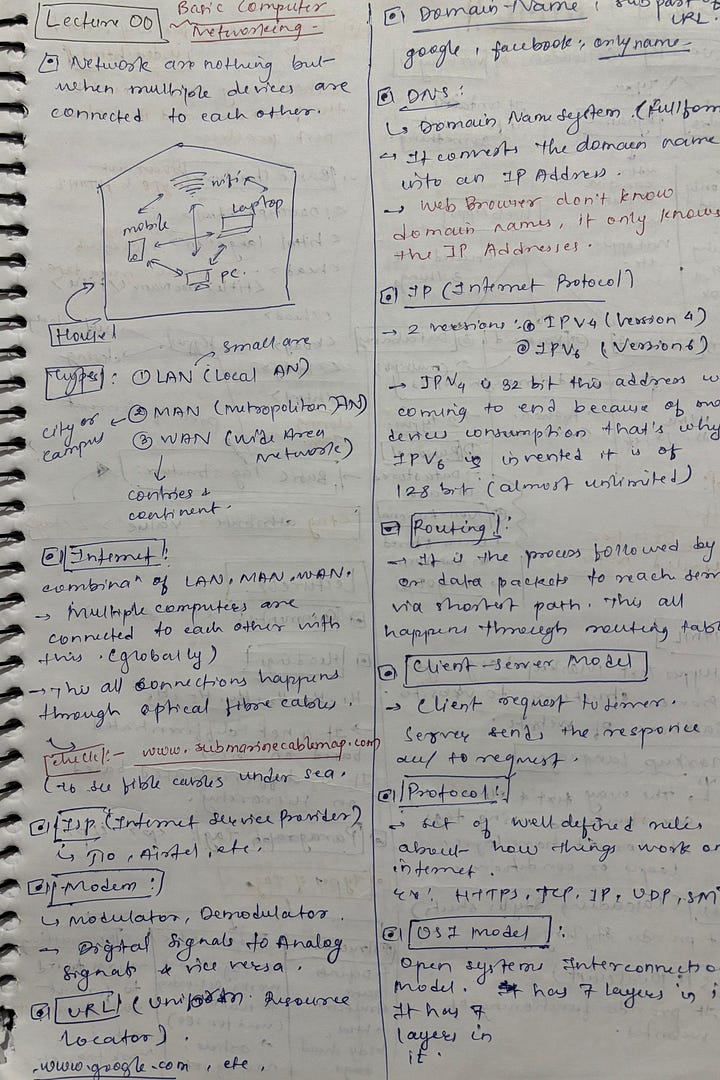 Lecture 00
Basic Computer
Networking -
Network are nothing but
when multiple devices are
connected to each other.
wifi
laptop
mobile
PC.
House
small are
Types : ① LAN (Local AN)
city or campus ← ② MAN (metropoliton AN)
③ WAN (Wide Area
Network)
contries &
continent.
Internet :
combinaⁿ of LAN, MAN, WAN.
→ Multiple computers are
connected to each other with
this. (globally)
→ This all connections happens
through optical fibre cables.
check :- www.submarinecablemap.com
(to see fible cables under sea.
ISP (Internet Service Provider)
↳ Jio, Airtel, etc.
Modem :
↳ Modulator, Demodulator.
→ Digital Signals to Analog
Signals & vice versa.
URL (Uniform Resource
Locator).
www.google.com, etc,
Domain-Name , sub part of
URL.
google, facebook, only name
DNS :
↳ Domain Name System. (Fullform
↳ It converts the domain name
into an IP Address.
→ Web Browser don't know
domain names, it only knows
the IP Addresses.
IP (Internet Protocol)
→ 2 versions : ① IPV4 (Version 4)
② IPV6 (Version 6)
→ IPV4 is 32 bit this address w
coming to end because of mo
device consumption that's why
IPV6 is invented it is of
128 bit (almost unlimited)
Routing :
→ It is the process followed by
or data packets to reach serv
via shortest path. This all
happens through routing tabl
Client-Server Model
→ Client request to server.
Server sends the responce
acc/ to request.
Protocol :
→ set of well defined rules
about how things work on
internet.
ex: HTTPS, TCP, IP, UDP, SMT
OSI model :
Open systems Interconnectio
model. It has 7 layers in i
It has 7
layers in
it.